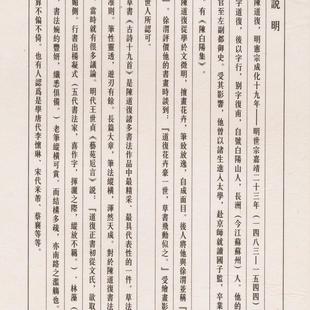 說 明
陳道復，明憲宗成化十九年——明世宗嘉靖二十三年（一四八三—一五四四）
字道復，後以字行，別字復甫，自號白陽山人，長洲（今江蘇蘇州）人。他的
官至左副都御史。受其影響，他曾以諸生進入太學，赴京師就讀國子監，卒業
有《陳白陽集》。
陳道復從學於文徵明，擅畫花卉，筆致放逸，自成面目。後人將他與徐渭並稱『
』。徐渭評價他的書畫時談到：『道復花卉豪一世，草書飛動似之。』受繪畫影
世人所認可。
草書《古詩十九首》是陳道復諸多書法作品中最精采、最具代表性的一件，草法
準則。筆性靈透，遊刃有餘。長篇大章，筆法縱橫，渾然天成。對於陳道復書法
當時就有很多議論。明代王世貞《藝苑卮言》說：『道復正書初從文氏，欲取
媚側。行書出楊凝式（五代書法家，喜作字，揮灑之際，縱放不羈。）、林藻（
書法婉約豐妍，纖悉俱備。）老筆縱橫可賞，而結構多疎，亦南路之濫觴也。
扉不偏不倚。也有人認爲是學唐代李懷琳、宋代米芾、蔡襄等等。